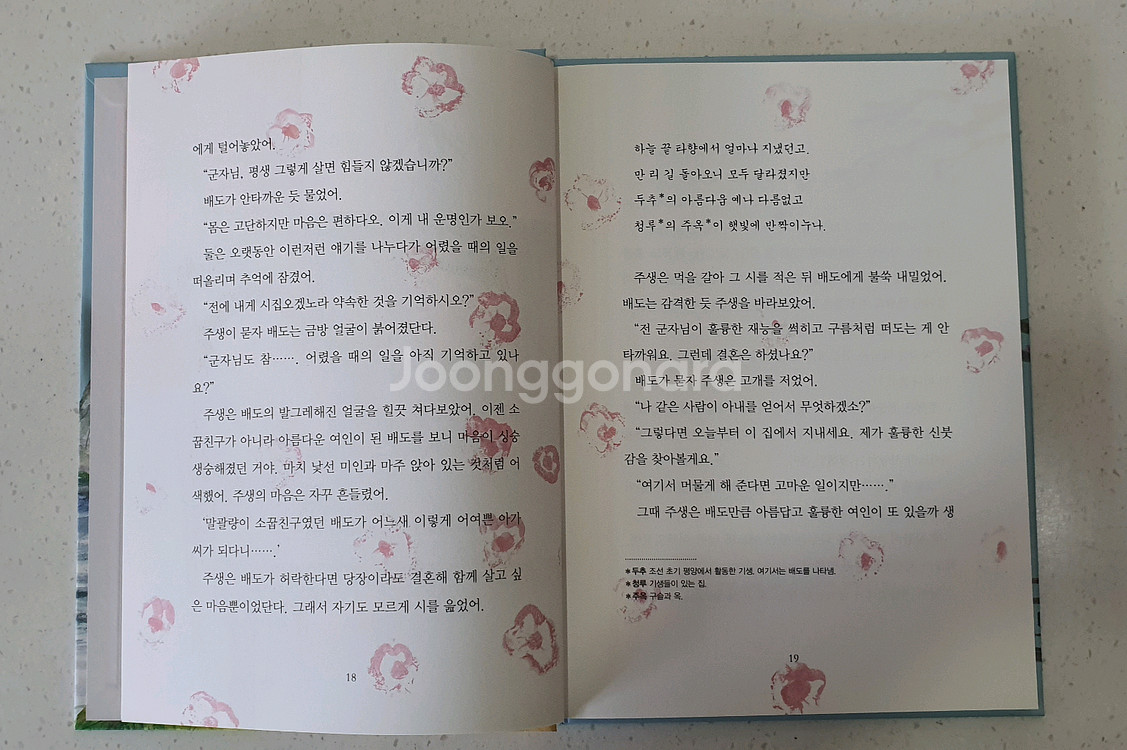 에게 털어놓았어.
“군자님, 평생 그렇게 살면 힘들지 않겠습니까?”
배도가 안타까운 듯 물었어.
“몸은 고단하지만 마음은 편하다오. 이게 내 운명인가 보오.”
둘은 오랫동안 이런저런 얘기를 나누다가 어렸을 때의 일을
떠올리며 추억에 잠겼어.
“전에 내게 시집오겠노라 약속한 것을 기억하시오?”
주생이 묻자 배도는 금방 얼굴이 붉어졌단다.
“군자님도 참……. 어렸을 때의 일을 아직 기억하고 있나
요?”
주생은 배도의 발그레해진 얼굴을 힐끗 쳐다보았어. 이젠 소
꿉친구가 아니라 아름다운 여인이 된 배도를 보니 마음이 싱숭
생숭해졌던 거야. 마치 낯선 미인과 마주 앉아 있는 것처럼 어
색했어. 주생의 마음은 자꾸 흔들렸어.
‘말괄량이 소꿉친구였던 배도가 어느새 이렇게 어여쁜 아가
씨가 되다니…….’
주생은 배도가 허락한다면 당장이라도 결혼해 함께 살고 싶
은 마음뿐이었단다. 그래서 자기도 모르게 시를 읊었어.
18
하늘 끝 타향에서 얼마나 지냈던고.
만 리 길 돌아오니 모두 달라졌지만
두추*의 아름다움 예나 다름없고
청루*의 주옥*이 햇빛에 반짝이누나.
주생은 먹을 갈아 그 시를 적은 뒤 배도에게 불쑥 내밀었어.
배도는 감격한 듯 주생을 바라보았어.
“전 군자님이 훌륭한 재능을 썩히고 구름처럼 떠도는 게 안
타까워요. 그런데 결혼은 하셨나요?”
배도가 묻자 주생은 고개를 저었어.
“나 같은 사람이 아내를 얻어서 무엇하겠소?”
“그렇다면 오늘부터 이 집에서 지내세요. 제가 훌륭한 신붓
감을 찾아볼게요.”
“여기서 머물게 해 준다면 고마운 일이지만…….”
그때 주생은 배도만큼 아름답고 훌륭한 여인이 또 있을까 생
*두추 조선 초기 평양에서 활동한 기생. 여기서는 배도를 나타냄.
*청루 기생들이 있는 집.
*주옥 구슬과 옥.
19
Joonggonara